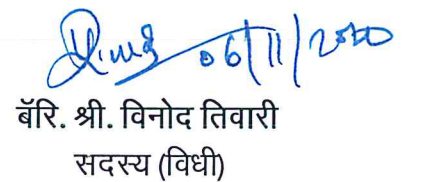 06/11/2020
बॅरि. श्री. विनोद तिवारी
सदस्य (विधी)